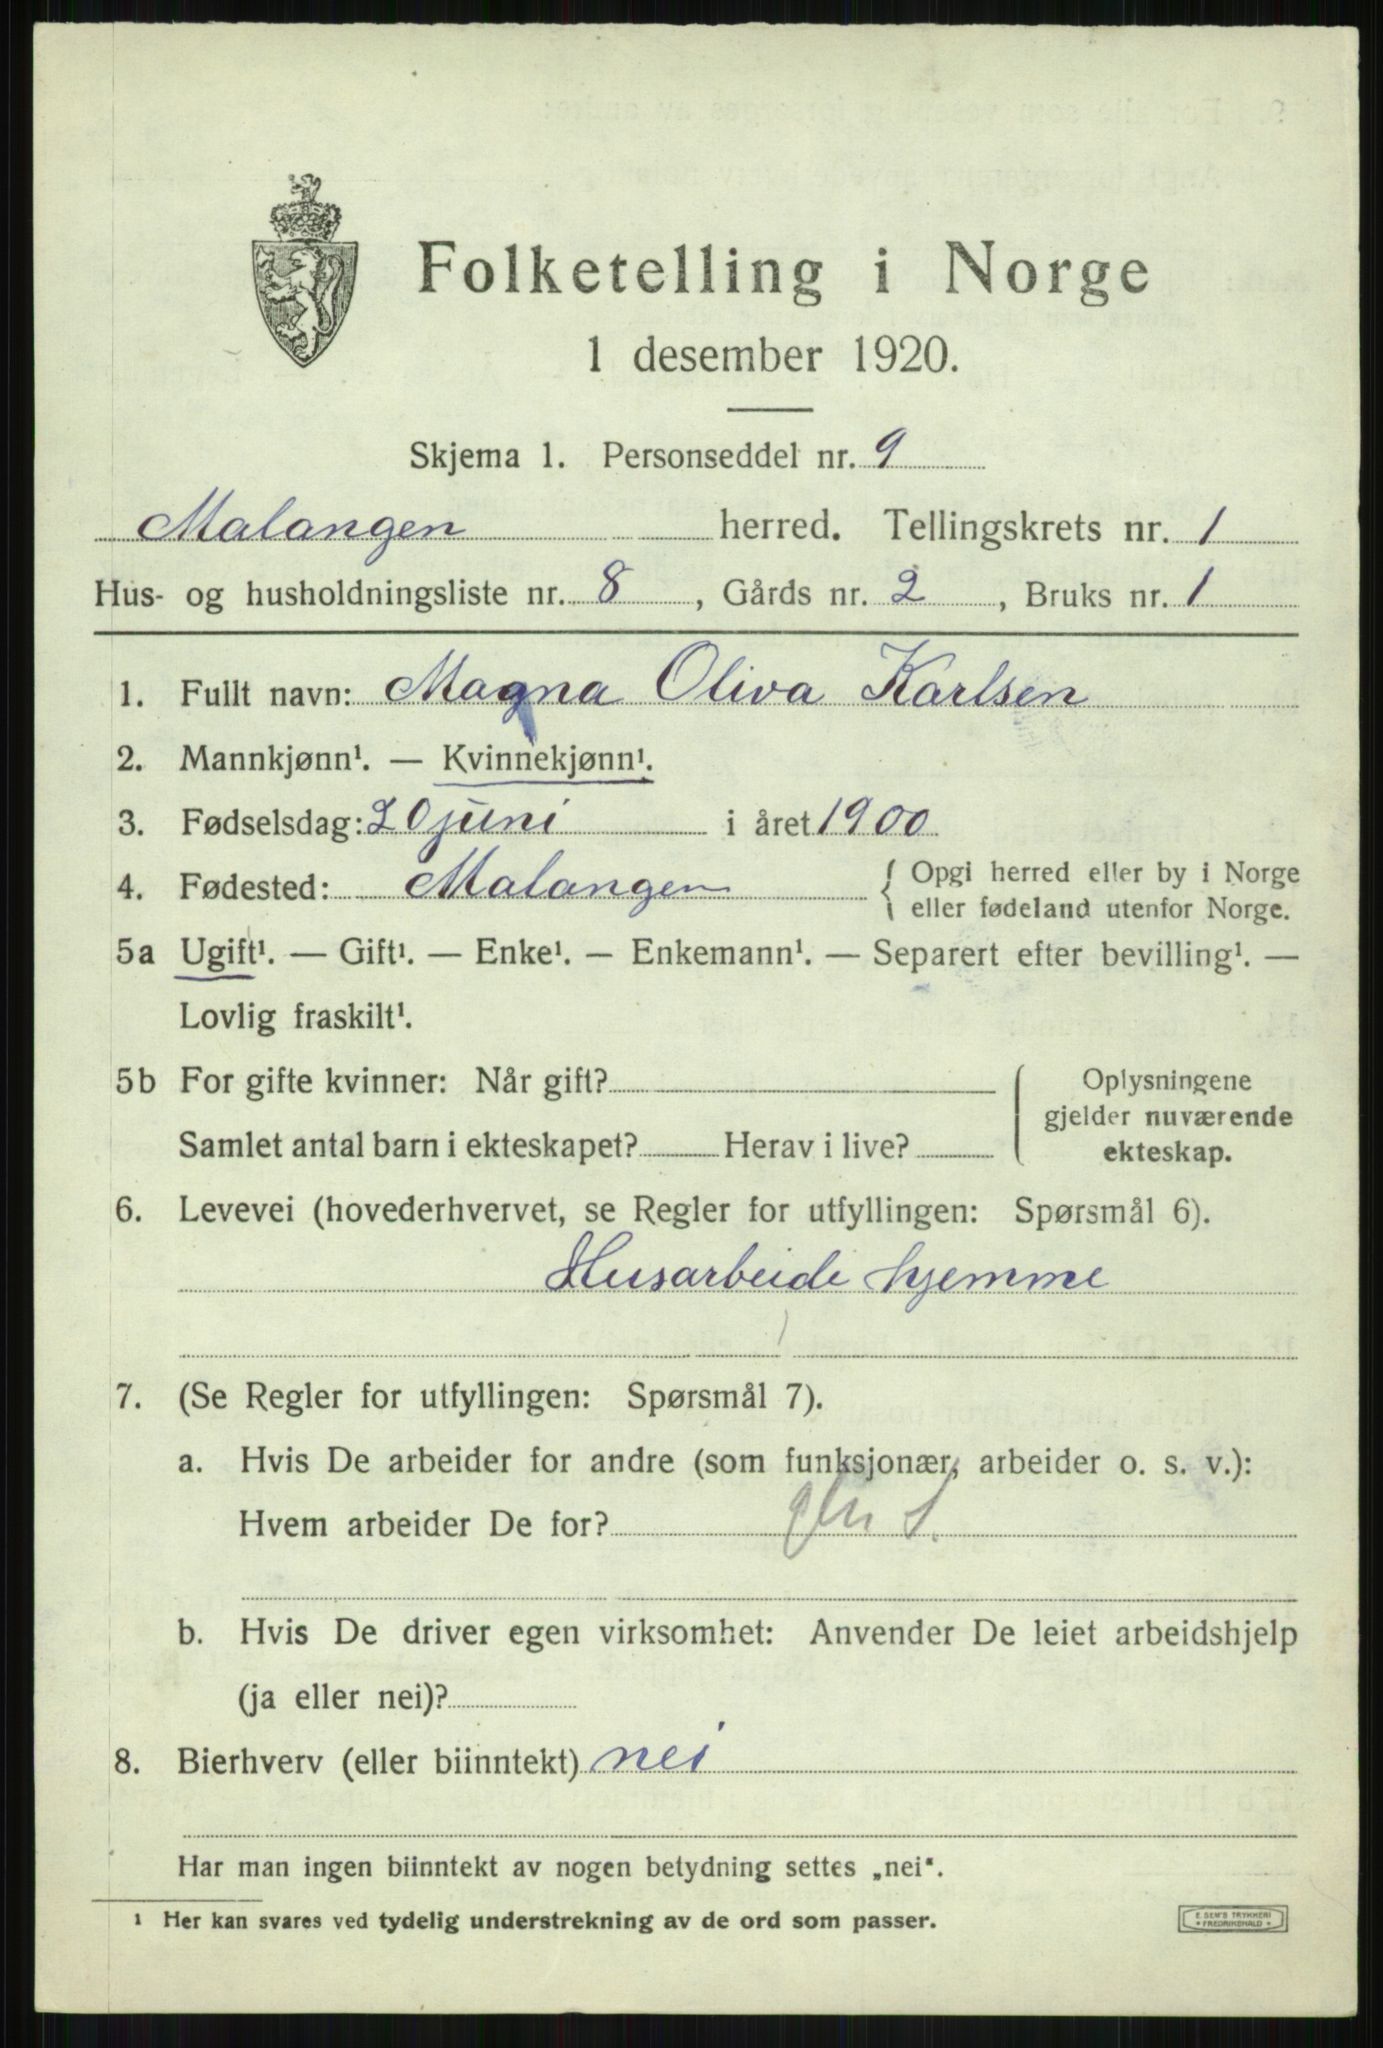 Folketelling i Norge
1 desember 1920.
Skjema 1. Personseddel nr. 9
Malangen herred. Tellingskrets nr. 1
Hus- og husholdningsliste nr. 8, Gårds nr. 2, Bruks nr. 1
1. Fullt navn: Magna Oliva Karlsen
2. Mannkjønn¹. — Kvinnekjønn¹.
3. Fødselsdag: 20 juni i året 1900
4. Fødested: Malangen { Opgi herred eller by i Norge
eller fødeland utenfor Norge.
5a Ugift¹. — Gift¹. — Enke¹. — Enkemann¹. — Separert efter bevilling¹. —
Lovlig fraskilt¹.
5b For gifte kvinner: Når gift? Oplysningene
gjelder nuværende
Samlet antal barn i ekteskapet? Herav i live? ekteskap.
6. Levevei (hovederhvervet, se Regler for utfyllingen: Spørsmål 6).
Husarbeide hjemme
7. (Se Regler for utfyllingen: Spørsmål 7).
a. Hvis De arbeider for andre (som funksjonær, arbeider o. s. v.):
Hvem arbeider De for?
b. Hvis De driver egen virksomhet: Anvender De leiet arbeidshjelp
(ja eller nei)?
8. Bierhverv (eller biinntekt) nei
Har man ingen biinntekt av nogen betydning settes „nei“.
¹ Her kan svares ved tydelig understrekning av de ord som passer.
E. SEM'S TRYKKERI
FREDRIKSHALD